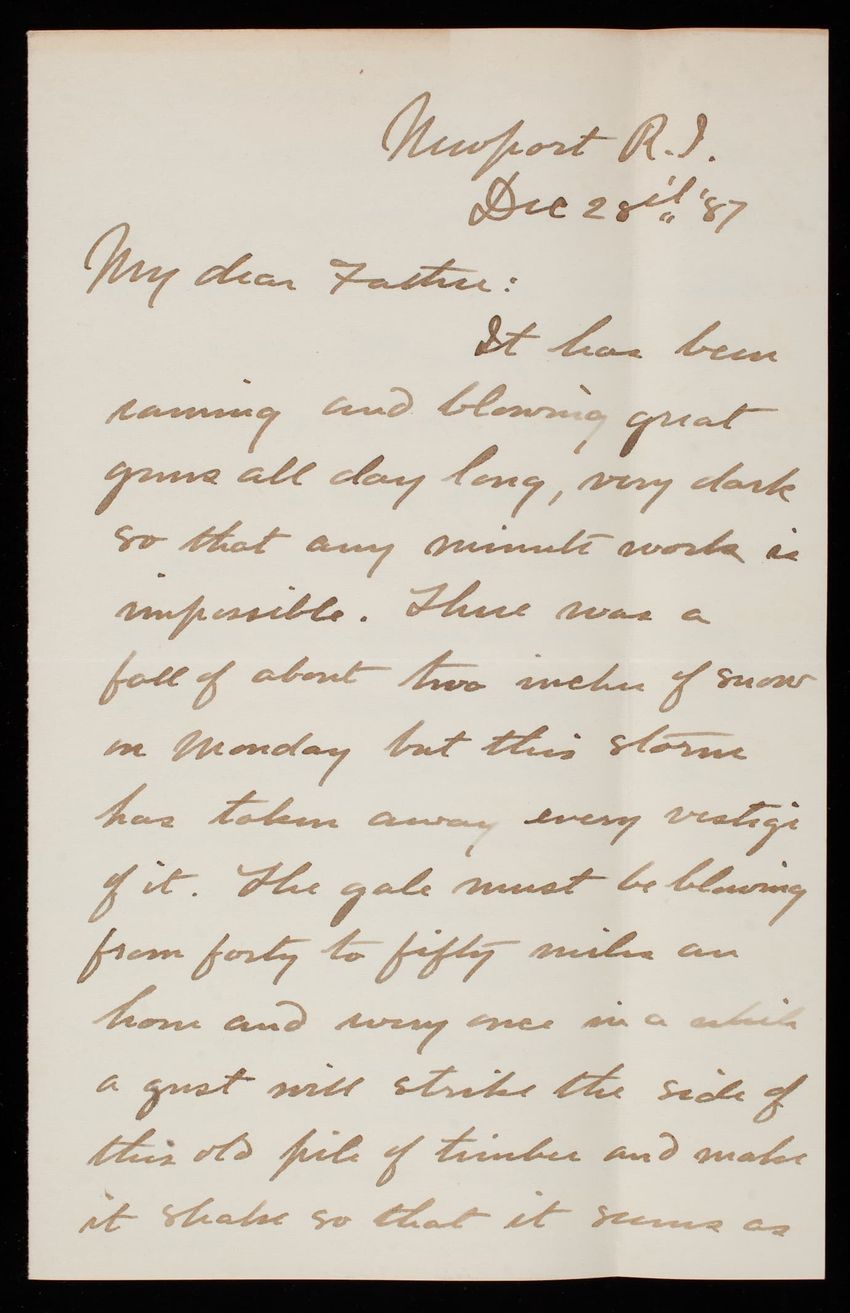 Newport R.I.
Dec 28th '87
My dear Father:
It has been
raining and blowing great
guns all day long, very dark
so that any minute work is
impossible. There was a
fall of about two inches of snow
on Monday but this storm
has taken away every vestige
of it. The gale must be blowing
from forty to fifty miles an
hour and every once in a while
a gust will strike the side of
this old pile of timber and make
it shake so that it seems as